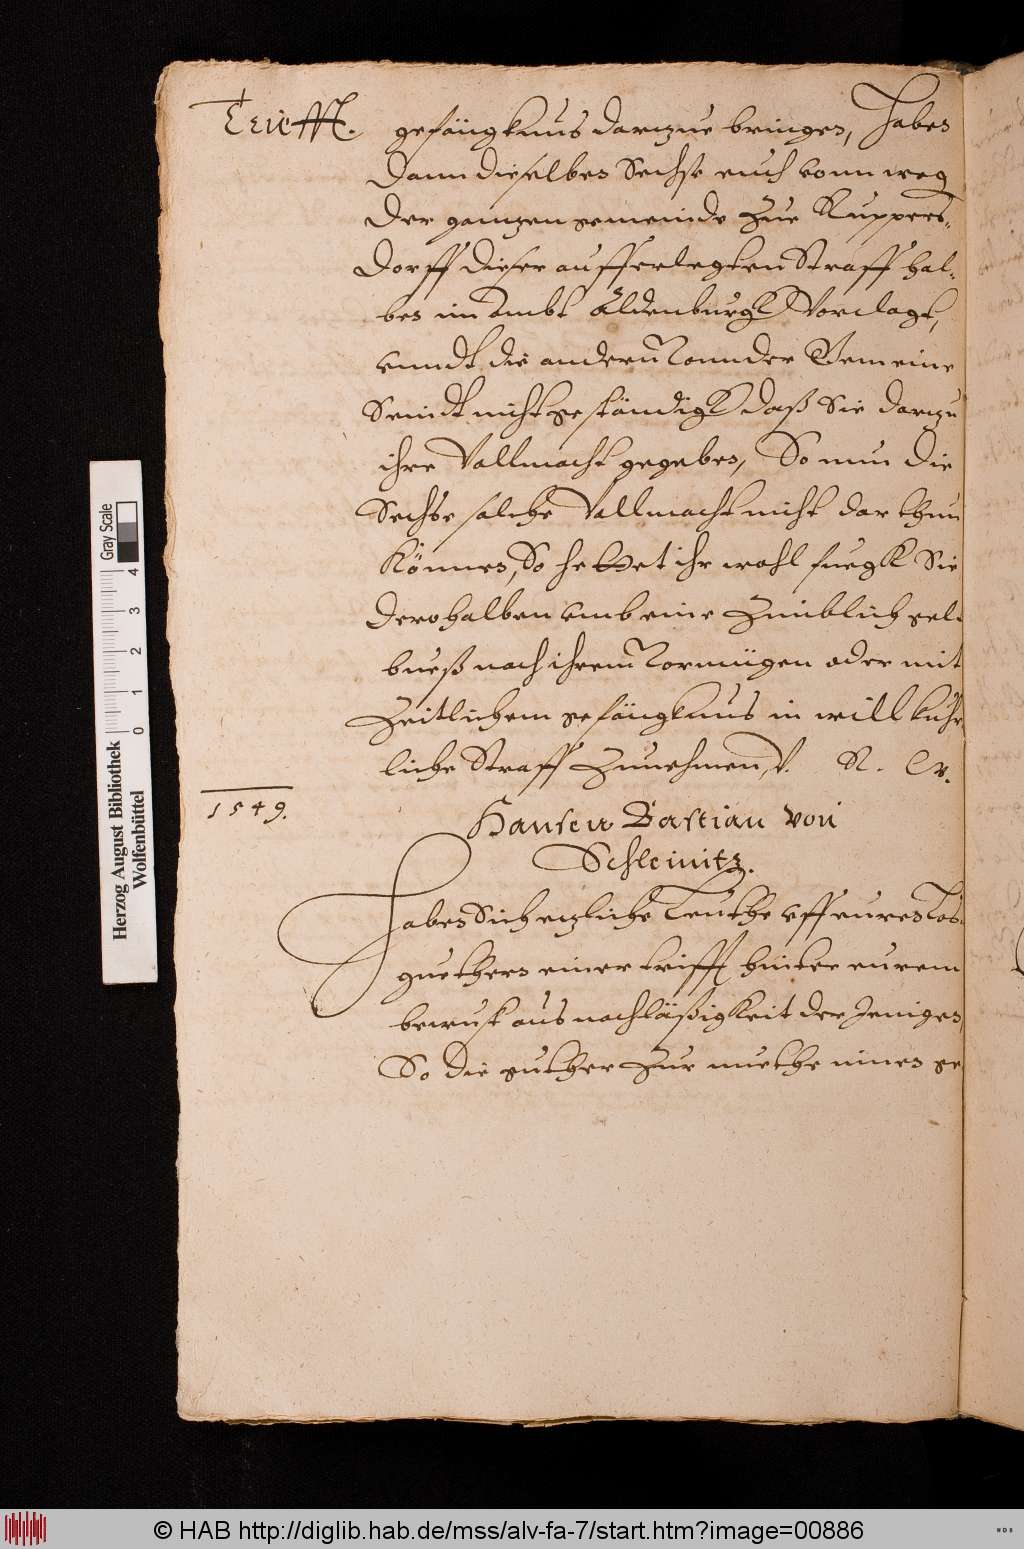 Trifft.
gefängknus darzue bringen, Haben
dann dieselben Sechse euch vonn weg
der ganzen gemeinde zue Ruppers-
dorff dieser aufferlegten Straff hal-
ben im Ambt Aldenburgk Vorclagt,
vnndt die andern vonn der Gemeine
Seindt nicht geständigk daß Sie darzu
ihre Vollmacht gegeben, So nun die
Sechse solche Vollmacht nicht darthun
Können, So hettet ihr wohl fuegk Sie
derohalben vmb eine Zimblich gel-
bueß nach ihrem Vormügen oder mit
Zeitlichem gefängknus in willkuhr
liche Straff Zunehmen, V. R. W.
1549.
Hansen Bastian von
Schleinitz.
Haben Sich ezliche Leuthe vff eures
guethers einer trifft hinter eurem
bewust aus nachläßigkeit der Jenigen,
So die guther Zur muethe innen ge
Herzog August Bibliothek
Wolfenbüttel
0 1 2 3 4
Gray Scale
© HAB http://diglib.hab.de/mss/alv-fa-7/start.htm?image=00886